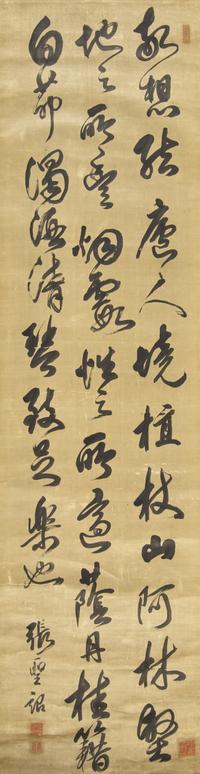 敬想結廬人境植杖山阿林壑
地之所豐烟霞性之所適蔭丹桂藉
白茅濁酒清琴致足樂也
張聖詔